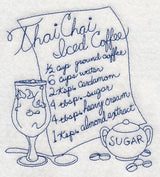 Thai Chai
Iced Coffee
½ cup ground coffee
6 cups water
2 tsps. cardamom
4 tbsps. sugar
4 tbsps. heavy cream
1 tsps. almond extract
SUGAR